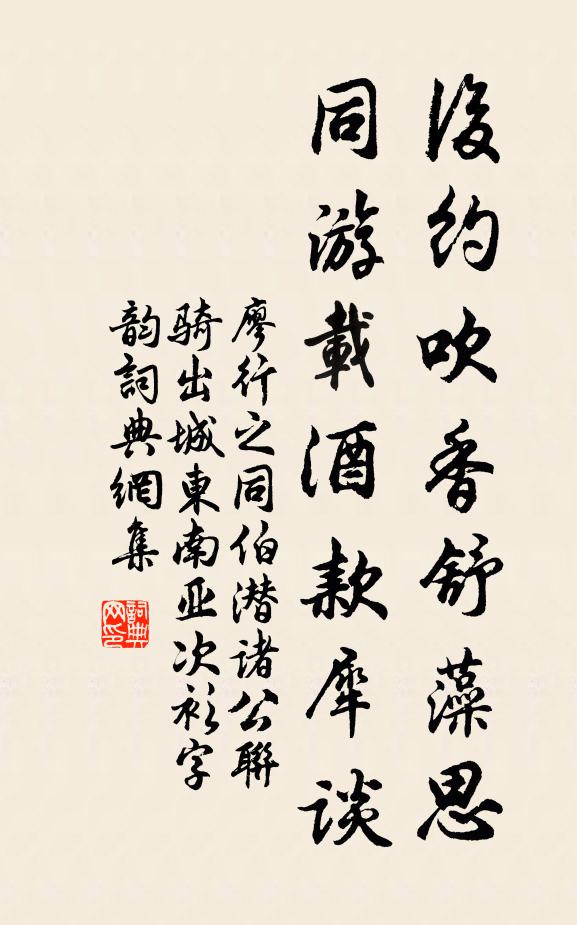 後约吹香舒藻思
同游載酒款犀談
廖行之同伯潜諸公聯
騎出城東南亚次衫字
韵詞典網集
詞典
网印